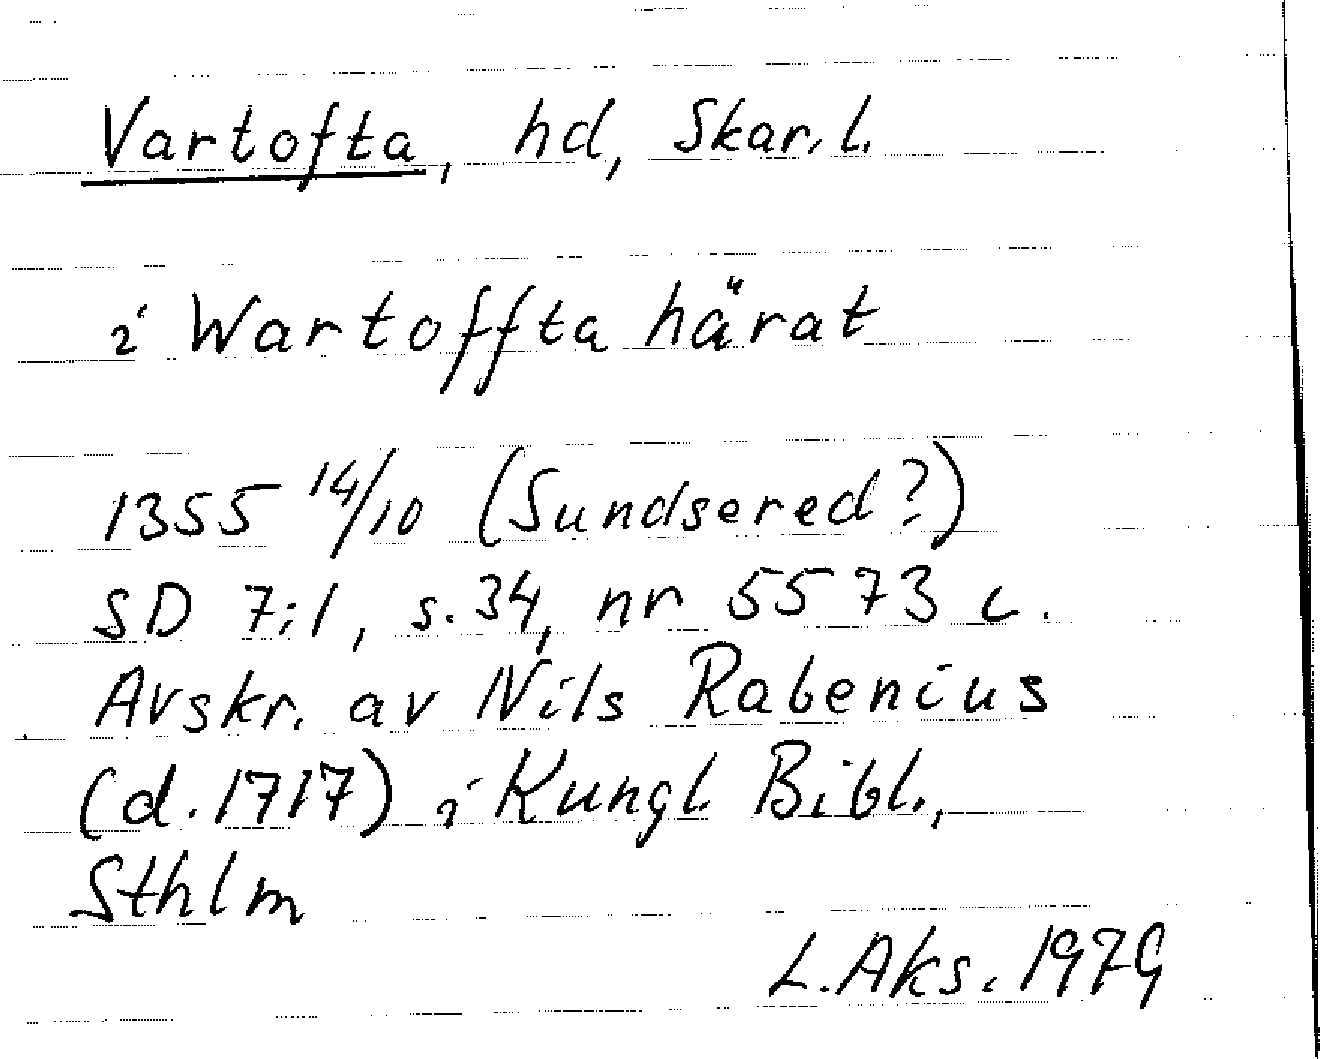 Vartofta, hd, Skar. l.
i Wartoffta härat
1355 14/10 (Sundsered?)
SD 7:1, s. 34, nr 5573 c.
Avskr. av Nils Rabenius
(d. 1717) i Kungl. Bibl.,
Sthlm
L. Aks. 1979